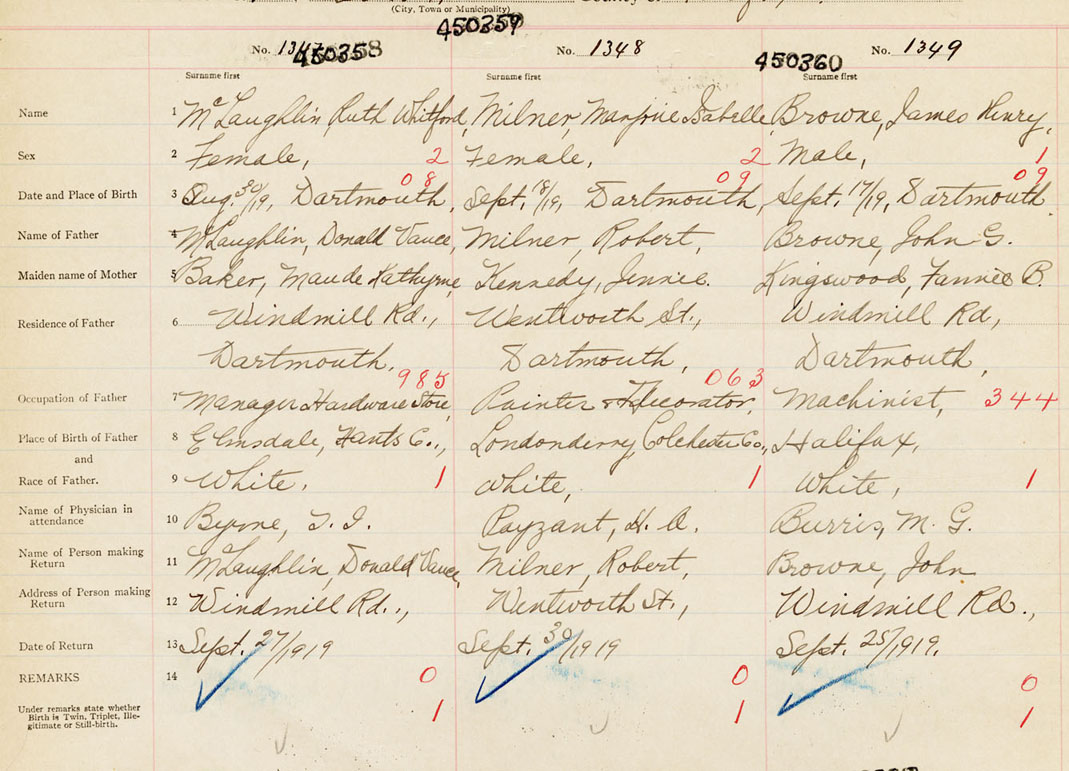 (City, Town or Municipality)
450359
No. 1347 450358 No. 1348 450360 No. 1349
Surname first Surname first Surname first
Name 1 McLaughlin Ruth Whitford, Milner, Marjorie Isabelle Browne, James Henry,
Sex 2 Female, 2 Female, 2 Male, 1
08 09 09
Date and Place of Birth 3 Aug. 30/19, Dartmouth, Sept. 18/19, Dartmouth, Sept. 17/19, Dartmouth
Name of Father 4 McLaughlin, Donald Vance, Milner, Robert, Browne, John G.
Maiden name of Mother 5 Baker, Maude Kathyrne, Kennedy, Jennie. Kingswood, Fannie B.
Residence of Father 6 Windmill Rd., Wentworth St., Windmill Rd,
Dartmouth, Dartmouth, Dartmouth,
985 063
Occupation of Father 7 Manager Hardware Store, Painter & Decorator, Machinist, 344
Place of Birth of Father 8 Elmsdale, Hants Co., Londonderry, Colchester Co., Halifax,
and
Race of Father. 9 White, 1 White, 1 White, 1
Name of Physician in
attendance 10 Byrne, T. I. Payzant, H. A. Burris, M. G.
Name of Person making
Return 11 McLaughlin, Donald Vance, Milner, Robert, Browne, John
Address of Person making
Return 12 Windmill Rd., Wentworth St., Windmill Rd.,
Date of Return 13 Sept. 27/1919 Sept. 30/1919 Sept. 25/1919.
REMARKS 14 0 0 0
Under remarks state whether
Birth is Twin, Triplet, Ille-
gitimate or Still-birth. 1 1 1